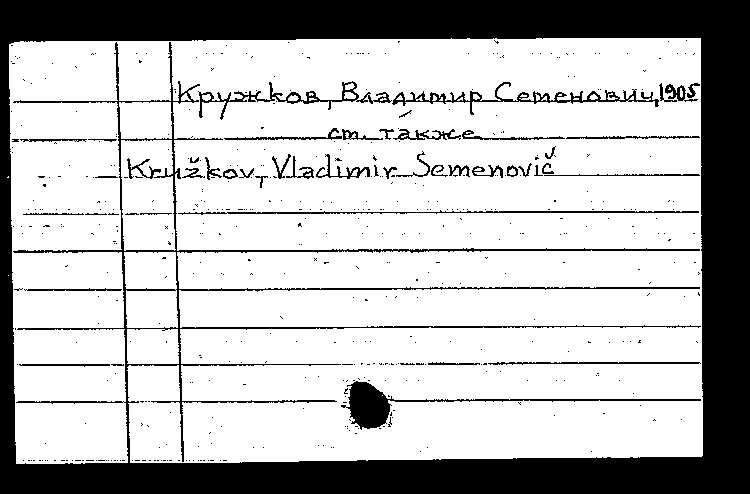 Кружков, Владимир Семенович, 1905
см. также
Kružkov, Vladimir Semenovič